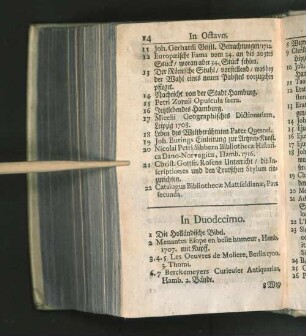 14 In Octavo.
11 Joh. Gerhardi Geistl. Betrachtungen 1712.
12 Europäische Fama vom 24. an bis 201tes
Stück / woran aber 34. Stück schön.
13 Der Römische Stuhl / vorstellend / was bey
der Wahl eines neuen Pabstes vorzugehen
pfleget.
14 Nachricht von der Stadt Hamburg.
15 Petri Zornii Opuscula sacra.
16 Jetztlebendes Hamburg.
17 Micelii Geographisches Dictionarium,
Leipzig 1708.
18 Leben des Weltberühmten Pater Qvenel.
19 Joh. Eurings Einleitung zur
20 Nicolai Petri Sibbern Bibliotheca Histori-
ca Dano-Norvegica, Hamb. 1716.
21 Christ. Gottfr. Rosens Unterricht / die In-
scriptiones und den Teutschen Stylum ein-
zurichten.
22 Catalogus Bibliothecæ Mattfeldianæ, Pars
secunda.
In Duodecimo.
1 Die Holländische Bibel.
2 Menantes Eloge en belle humeur, Hamb.
1707. mit Kupff.
3.4.5 Les Oeuvres de Moliere, Berlin 1700.
3. Thomi.
6.7 Berckemeyers Curieuser Antiquarius,
Hamb. 2. Bände.